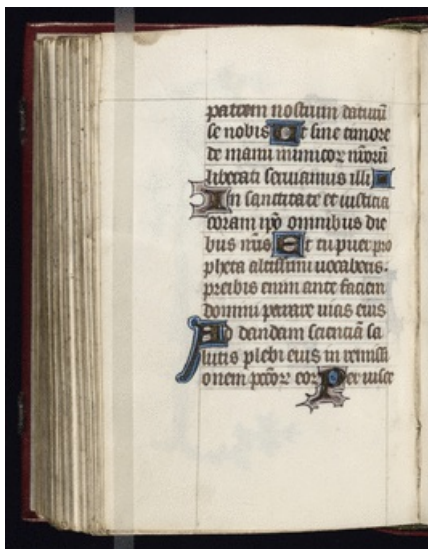 patrem nostrum daturū
se nobis Ut sine timore
de manu inimicoꝝ nr̄oꝝ
liberati seruiamus illi
In sanctitate et iusticia
coram ip̄o omnibus die
bus nr̄is Et tu puer pro
pheta altissimi uocaberis:
preibis enim ante faciem
domini parare uias eius
Ad dandam scientiā sa
lutis plebi eius in remissi
onem pcc̄oꝝ eoꝝ Per uisce